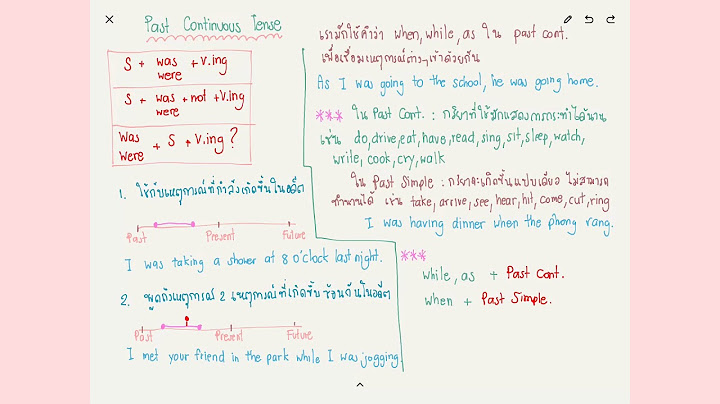 Past Continuous Tense
S + was + V.ing
were
S + was + not + V.ing
were
Was + S + V.ing ?
were
1. ใช้กับเหตุการณ์ที่กำลังเกิดขึ้นในอดีต
Past Present Future
I was taking a shower at 8 o'clock last night.
2. พูดถึงเหตุการณ์ 2 เหตุการณ์ที่เกิดขึ้นซ้อนกันในอดีต
Past Present Future
I met your friend in the park while I was jogging.
เรามักใช้คำว่า when, while, as ใน past cont.
เพื่อเชื่อมเหตุการณ์ต่างๆเข้าด้วยกัน
As I was going to the school, he was going home.
*** ใน Past Cont. : กริยาที่ใช้มักแสดงการกระทำได้นาน
เช่น do, drive, eat, have, read, sing, sit, sleep, watch,
write, cook, cry, walk
ใน Past Simple : กริยาจะเกิดขึ้นแปบเดียว ไม่สามารถ
ทำนานได้ เช่น take, arrive, see, hear, hit, come, cut, ring
I was having dinner when the phong rang.
***
while, as + Past Cont.
when + Past Simple.